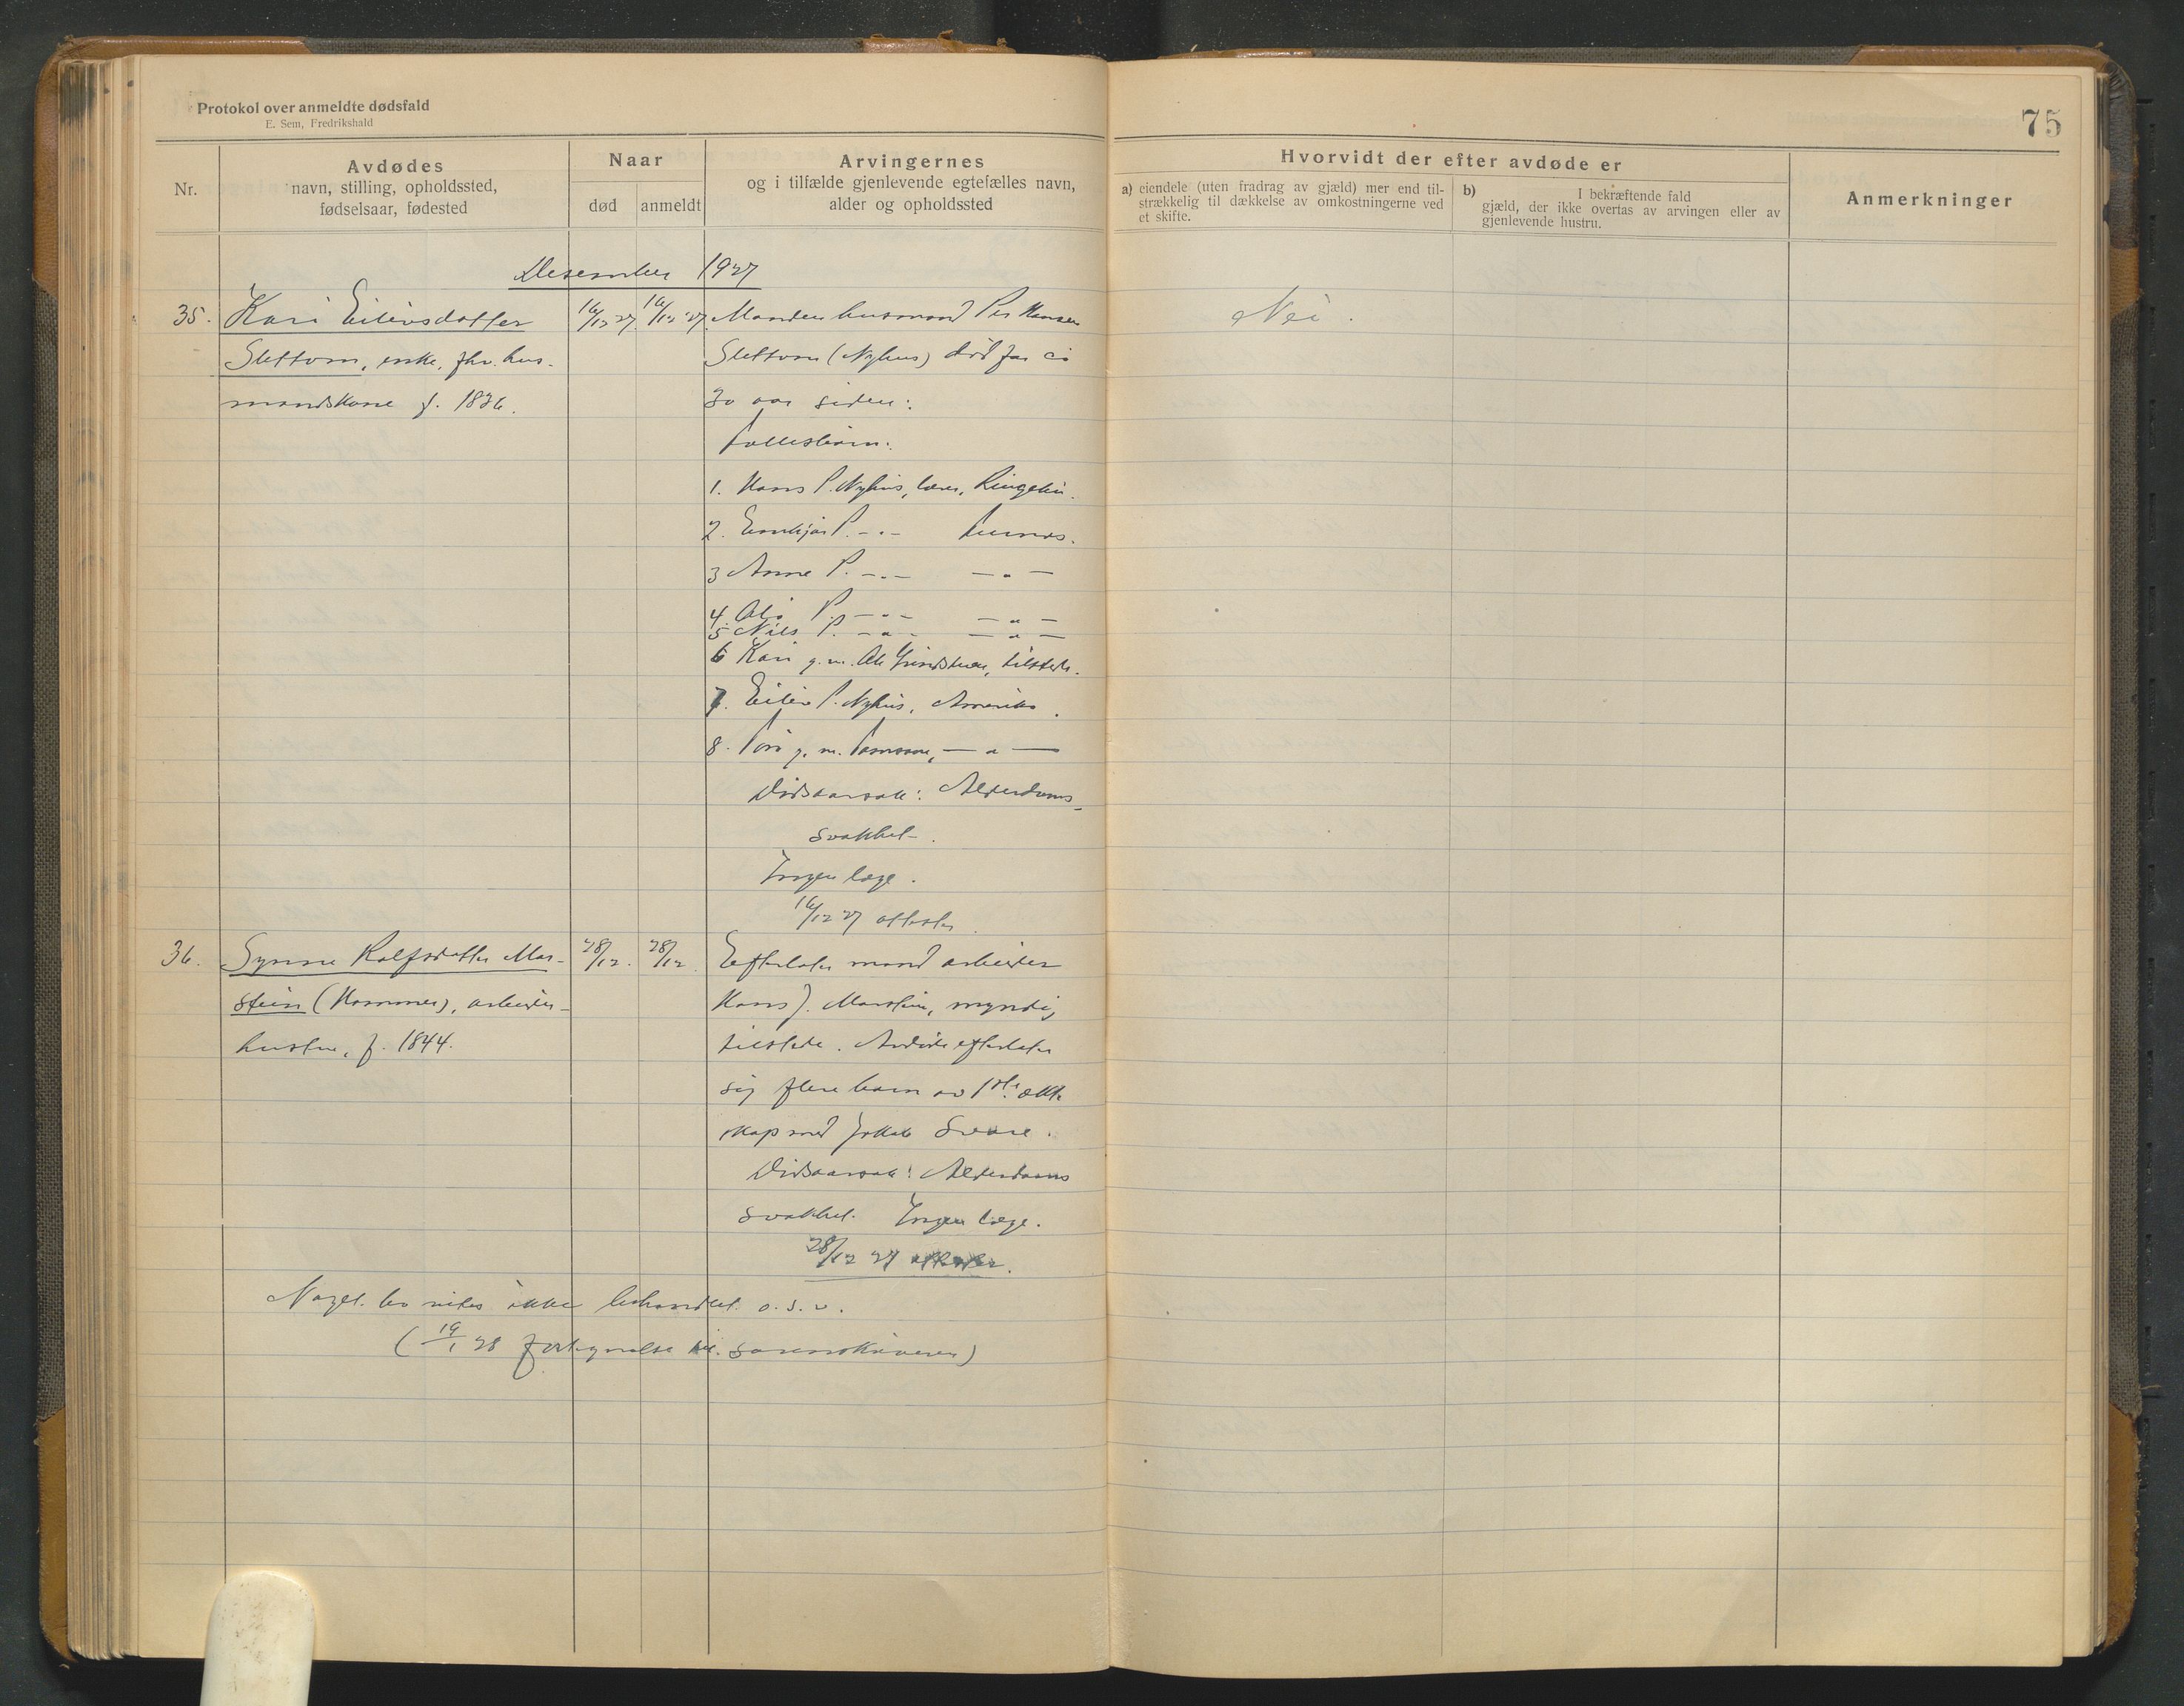 Protokol over anmeldte dødsfald
E. Sem, Fredrikshald
75
Nr.
Avdødes
navn, stilling, opholdssted,
fødselsaar, fødested
Naar
død
anmeldt
Arvingernes
og i tilfælde gjenlevende egtefælles navn,
alder og opholdssted
Hvorvidt der efter avdøde er
a) eiendele (uten fradrag av gjæld) mer end til-
strækkelig til dækkelse av omkostningerne ved
et skifte.
b) I bekræftende fald
gjæld, der ikke overtas av arvingen eller av
gjenlevende hustru.
Anmerkninger
Desember 1927
35. Kari Eilivsdatter 16/12 27. 16/12 27. Manden husmand Per Hansen Nei.
Slettom, enke, fhv. hus-
mandskone f. 1836.
Slettom (Nyhus) død for ca
30 aar siden:
Fællesbarn:
1. Hans P. Nyhus, lærer, Ringebu.
2. P. -"-
3 Anne P. -"- -"-
4. P. -"- -"-
5 Nils P. -"- -"-
6 Kari g. m. Ole tilstede.
7. Eiliv P. Nyhus, Amerika.
8. g. m. -"-
Dødsaarsak: Alderdoms-
svakhet.
Ingen læge.
16/12 27 attester.
36. Synne Rolfsdatter Mar- 28/12. 28/12. Efterlater mand arbeider
stein (Hammer), arbeider-
hustru, f. 1844.
Hans J. Marstein, myndig
tilstede. Avdøde efterlater
sig flere barn av 1ste ekte
skap med Jakob
Dødsaarsak: Alderdoms
svakhet. Ingen læge.
28/12 27 attester.
ikke behandlet o. s. v.
(19/1 28 til sorenskriveren)